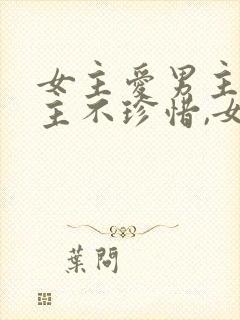 女主愛男主
主不珍惜,女
葉問